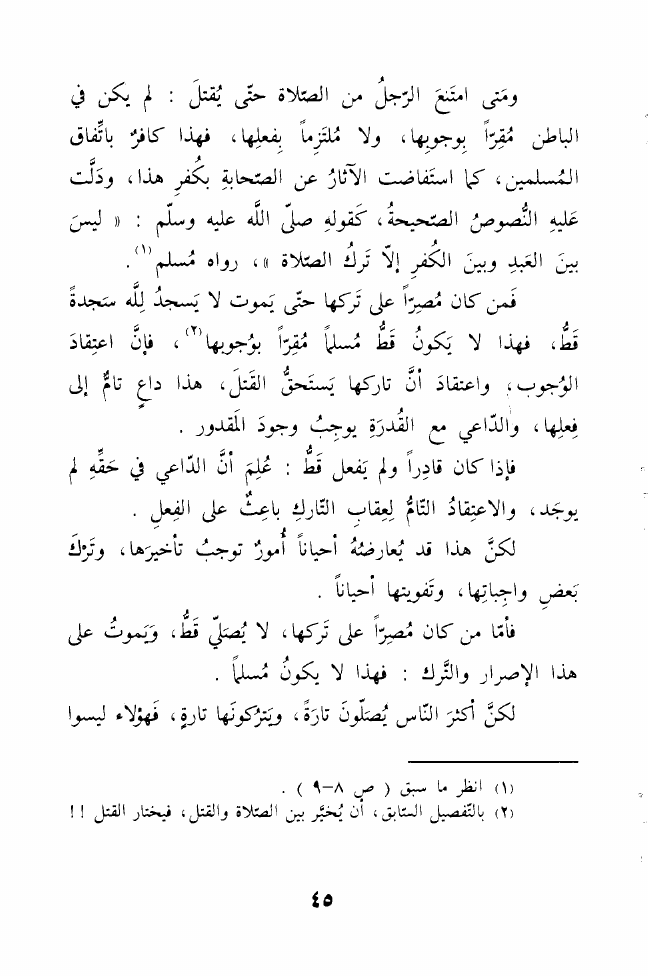 ومَتى امتَنعَ الرّجلُ من الصّلاة حتّى يُقتلَ : لم يكن في
الباطن مُقِرّاً بِوجوبِها، ولا مُلتَزِماً بِفعلِها، فهذا كافرٌ باتِّفاق
المُسلمين، كما استَفاضت الآثارُ عن الصّحابةِ بكُفرِ هذا، ودَلَّت
عَليهِ النُّصوصُ الصّحيحةُ، كَقولهِ صلّى اللَّه عليه وسلّم : « ليسَ
بينَ العَبدِ وبينَ الكُفرِ إلاّ تَركُ الصّلاة »، رواه مُسلم(١).
فَمن كان مُصِرّاً على تَركها حتّى يَموت لا يَسجدُ لِلَّه سَجدةً
قَطُّ، فهذا لا يَكونُ قَطُّ مُسلماً مُقِرّاً بوُجوبها(٢)، فإنَّ اعتِقادَ
الوُجوب، واعتقادَ أنَّ تاركها يَستَحقُّ القَتلَ، هذا داعٍ تامٌّ إلى
فِعلِها، والدّاعي مع القُدرَةِ يوجِبُ وجودَ المَقدور .
فإذا كان قادِراً ولم يَفعل قَطُّ : عُلِمَ أنَّ الدّاعي في حَقّهِ لم
يوجَد، والاعتِقادُ التّامُّ لِعِقابِ التّاركِ باعِثٌ على الفِعلِ .
لكنَّ هذا قد يُعارضُهُ أحياناً أُمورٌ توجبُ تأخيرَها، وتَرْكَ
بَعضِ واجِباتِها، وتَفويتها أحياناً .
فأمّا من كان مُصِرّاً على تَركها، لا يُصَلّي قَطُّ، وَيَموتُ على
هذا الإصرار والتَّرك : فهذا لا يكونُ مُسلماً .
لكنَّ أكثرَ النّاس يُصَلّونَ تارَةً، ويَتركُونَها تارةٍ، فَهؤلاء ليسوا
(١) انظر ما سبق ( ص ٨-٩ ) .
(٢) بالتّفصيل السّابق، أن يُخيَّر بين الصّلاة والقتل، فيختار القتل !!
٤٥